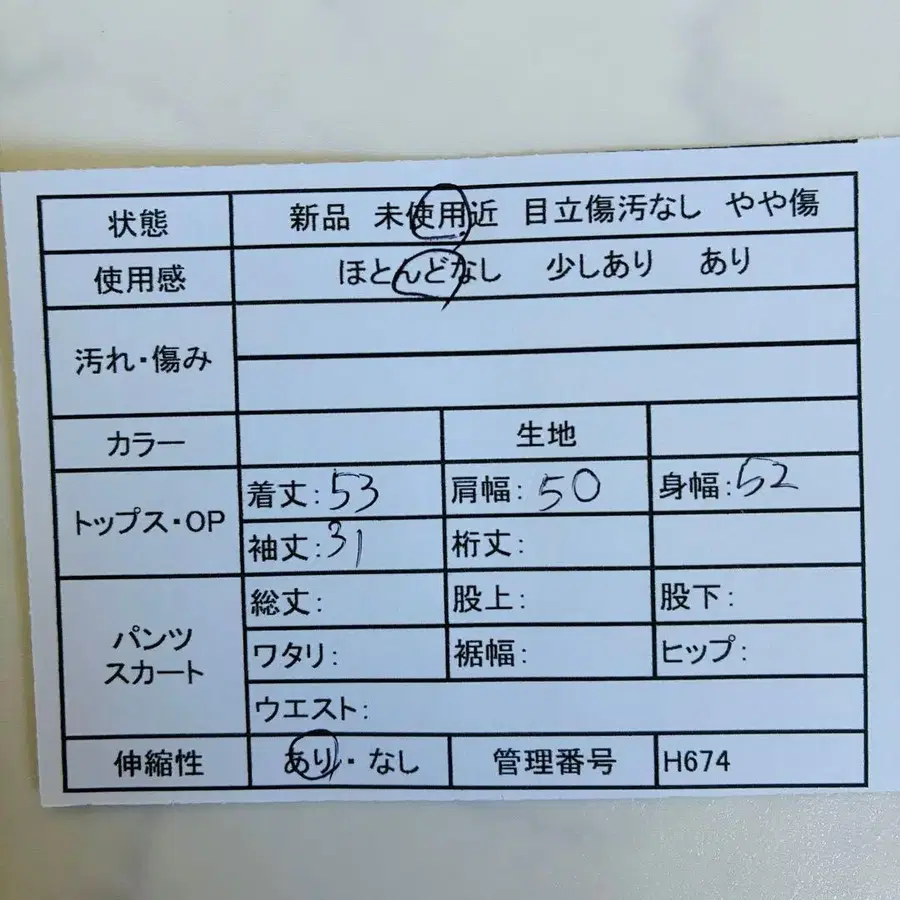 状態 新品 未使用近 目立傷汚なし やや傷
使用感 ほとんどなし 少しあり あり
汚れ・傷み
カラー 生地
トップス・OP
着丈:53 肩幅:50 身幅:52
袖丈:31 裄丈:
パンツ
スカート
総丈: 股上: 股下:
ワタリ: 裾幅: ヒップ:
ウエスト:
伸縮性 あり・なし 管理番号 H674